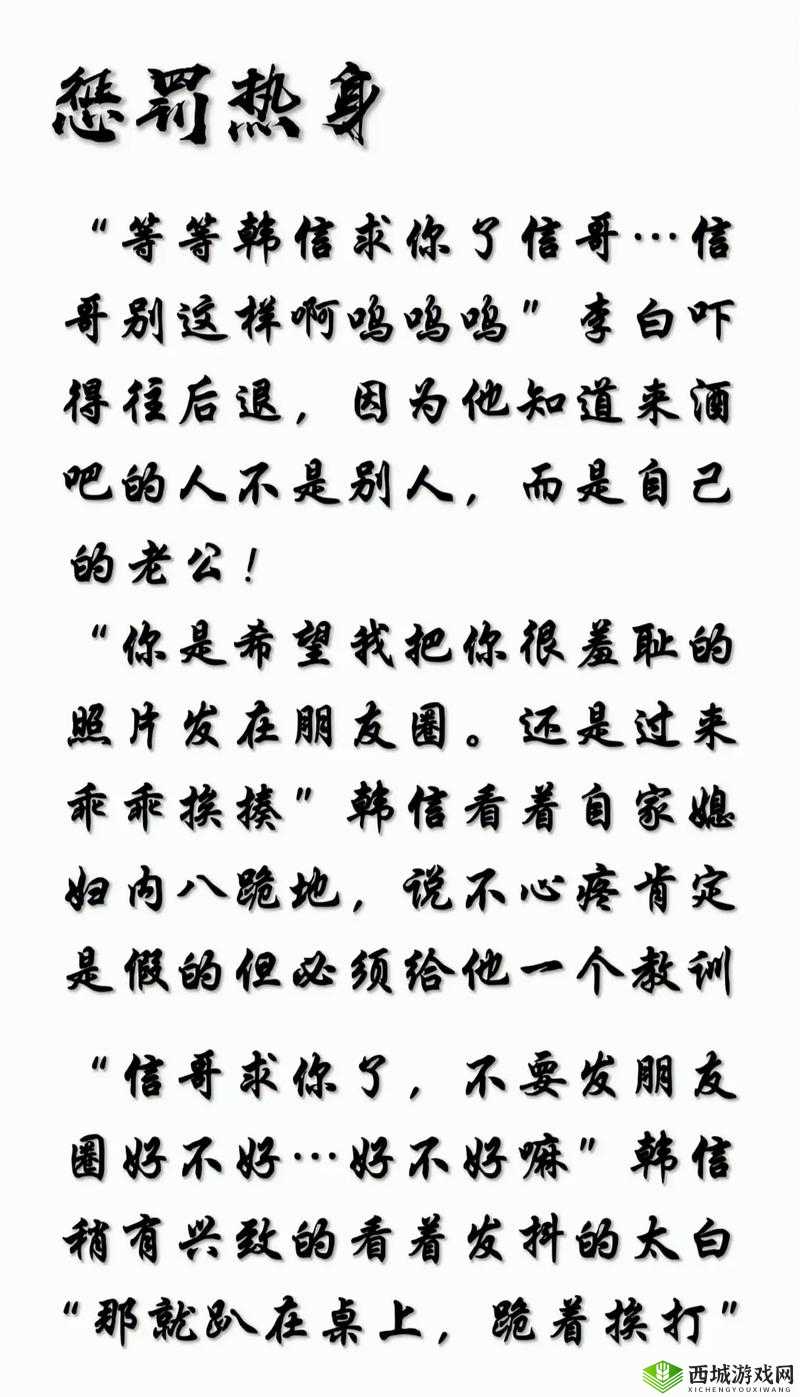 惩罚热身
“等等韩信求你了信哥…信
哥别这样啊呜呜呜”李白吓
得往后退，因为他知道来酒
吧的人不是别人，而是自己
的老公！
“你是希望我把你很羞耻的
照片发在朋友圈。还是过来
乖乖挨揍”韩信看着自家媳
妇内八跪地，说不心疼肯定
是假的但必须给他一个教训
“信哥求你了，不要发朋友
圈好不好…好不好嘛”韩信
稍有兴致的看着发抖的太白
“那就趴在桌上，跪着挨打”
西城游戏网
XICHENGYOUXIWANG